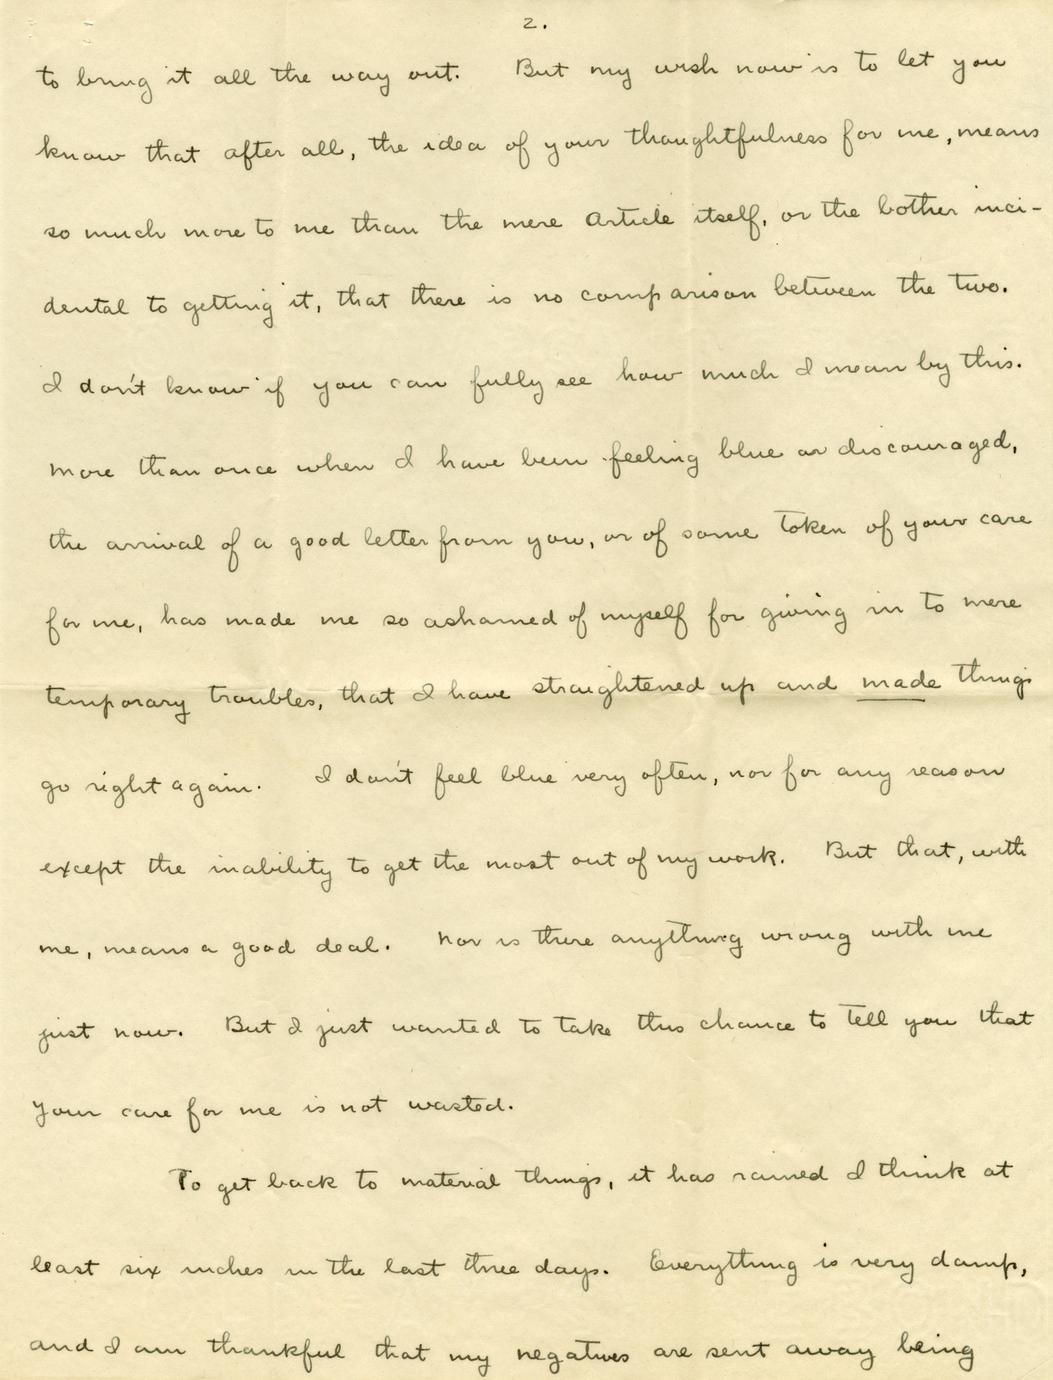 2.
to bring it all the way out. But my wish now is to let you
know that after all, the idea of your thoughtfulness for me, means
so much more to me than the mere article itself, or the bother inci-
dental to getting it, that there is no comparison between the two.
I don't know if you can fully see how much I mean by this.
More than once when I have been feeling blue or discouraged,
the arrival of a good letter from you, or of some token of your care
for me, has made me so ashamed of myself for giving in to mere
temporary troubles, that I have straightened up and made things
go right again. I don't feel blue very often, nor for any reason
except the inability to get the most out of my work. But that, with
me, means a good deal. Nor is there anything wrong with me
just now. But I just wanted to take this chance to tell you that
your care for me is not wasted.
To get back to material things, it has rained I think at
least six inches in the last three days. Everything is very damp,
and I am thankful that my negatives are sent away being